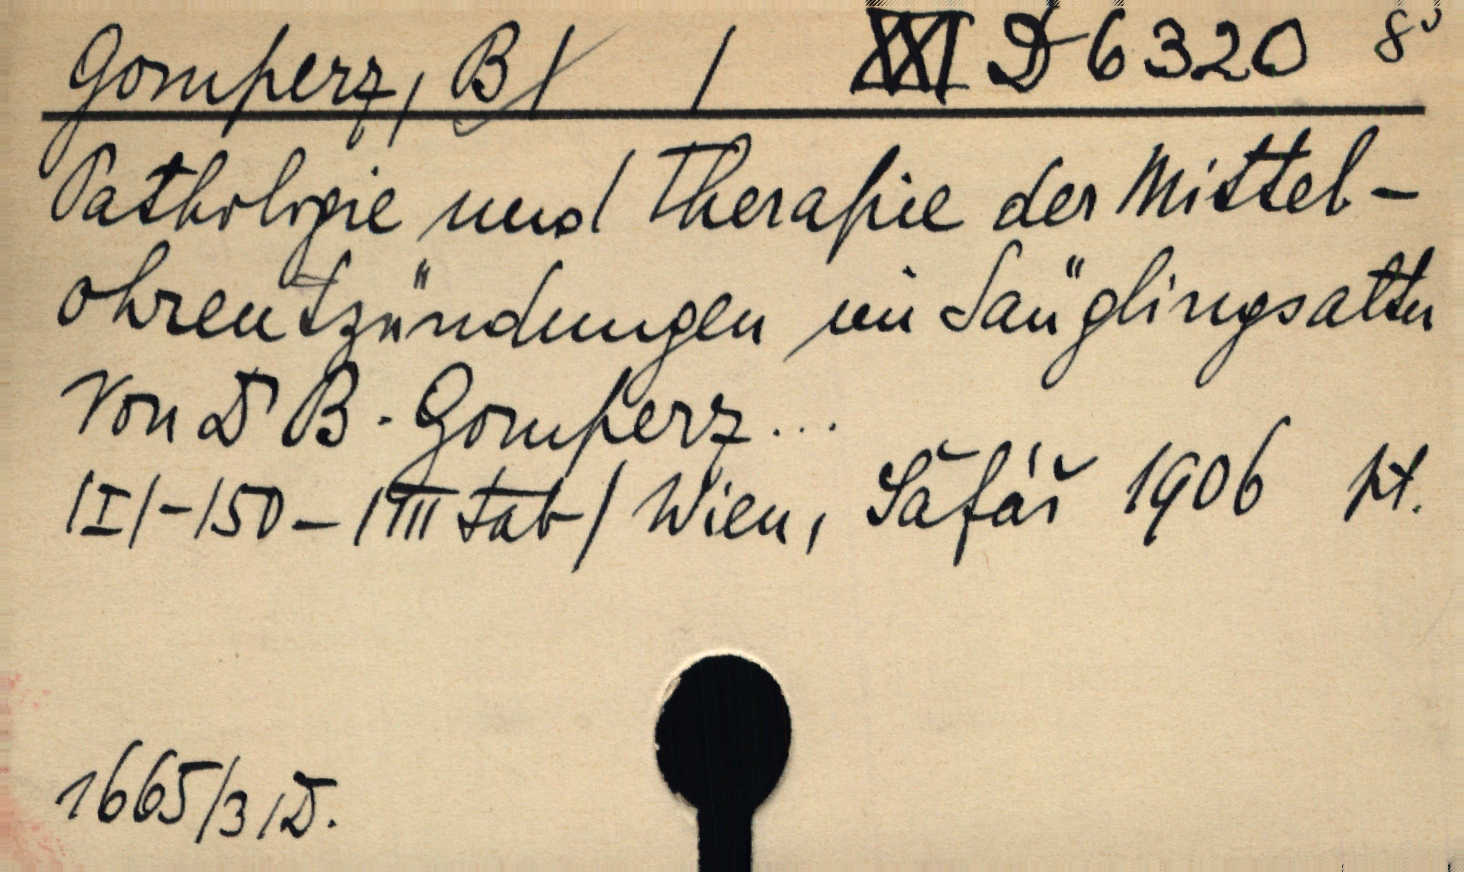 Gomperz, B/ / XXI D 6320 8°
Pathologie und Therapie der Mittel-
ohrentzündungen im Säuglingsalter
Von Dr B. Gomperz...
/I/-150-/III tab/ Wien, Šafář 1906 kt.
1665/31D.